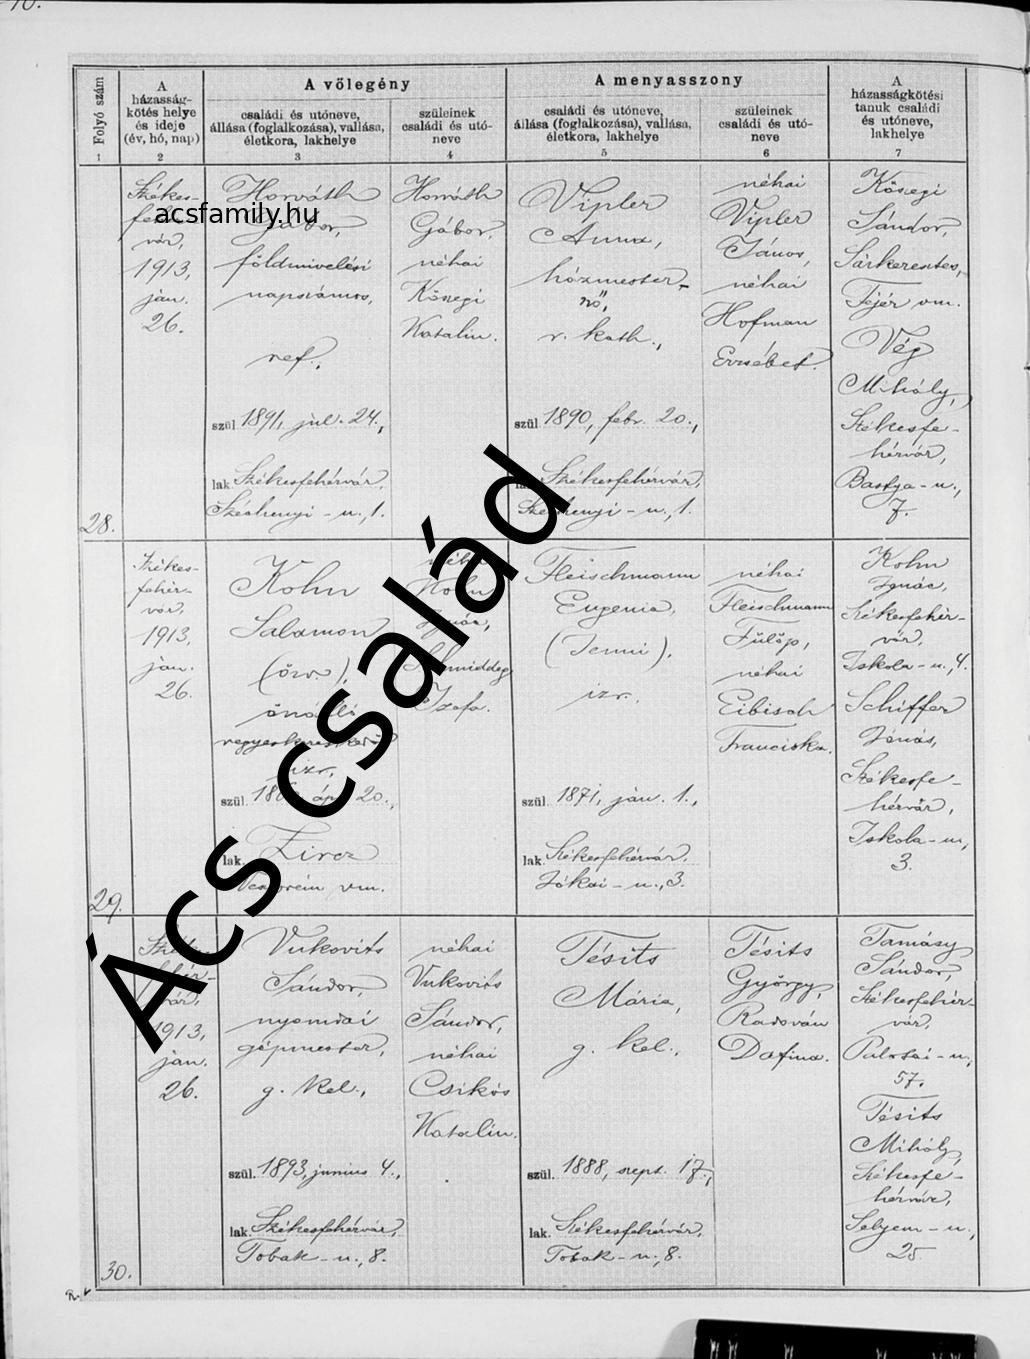 10.
Folyó szám
1
A
házasság-
kötés helye
és ideje
(év, hó, nap)
2
A vőlegény
családi és utóneve,
állása (foglalkozása), vallása,
életkora, lakhelye
3
szüleinek
családi és utó-
neve
4
A menyasszony
családi és utóneve,
állása (foglalkozása), vallása,
életkora, lakhelye
5
szüleinek
családi és utó-
neve
6
A
házasságkötési
tanuk családi
és utóneve,
lakhelye
7
28.
Székes-
vár,
1913,
jan.
26.
Horváth
Gábor,
földmivelési
napszámos,
ref.,
szül. 1891, jul. 24.,
lak Székesfehérvár,
Széchenyi-u., 1.
Horváth
Gábor,
néhai
Kőszegi
Katalin.
Vipler
Anna,
házmester-
nő,
r. kath.,
szül. 1890, febr. 20.,
lak Székesfehérvár,
Széchenyi-u., 1.
néhai
Vipler
János,
néhai
Hofman
Erzsébet.
Kőszegi
Sándor,
Sárkeresztes,
Fejér vm.
Vég
Mihály,
Székesfe-
hérvár,
Bastya-u.,
7.
29.
Székes-
fehér-
vár,
1913,
jan.
26.
Kohn
Salamon
(özv.),
önálló
vegyeskereskedő
izr.,
szül. 20.,
lak. Zircz
Veszprém vm.
Kohn
Ignác,
Schmiddeg
Fleischmann
Eugenia,
(Jenni),
izr.
szül. 1871, ján. 1.,
lak. Székesfehérvár,
Jókai-u., 3.
néhai
Fleischmann
Fülöp,
néhai
Eibisch
Franciska.
Kohn
Ignác,
Székesfehér-
vár,
Iskola-u., 4.
Schiffer
Jónás,
Székesfe-
hérvár,
Iskola-u.,
3.
30.
vár,
1913,
jan.
26.
Vukovits
Sándor,
nyomdai
gépmester,
g. kel.,
szül. 1893, junius 4.,
lak. Székesfehérvár,
Tobak-u., 8.
néhai
Vukovits
Sándor,
néhai
Csikós
Katalin.
Tésits
Mária,
g. kel.,
szül. 1888, szept. 17.,
lak. Székesfehérvár,
Tobak-u., 8.
Tésits
György,
Radován
Dafina.
Tamásy
Sándor,
Székesfehér-
vár,
Palotai-u.,
57.
Tésits
Mihály,
Székesfe-
hérvár,
Selyem-u.,
25
acsfamily.hu
Ács család